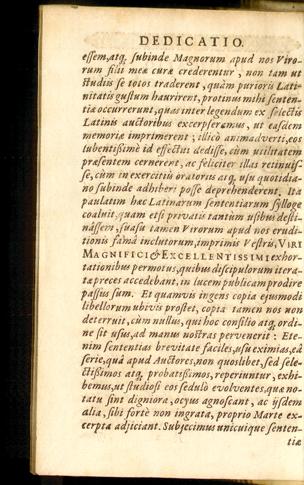 DEDICATIO.
essem, atq. subinde Magnorum apud nos Viro-
rum filii meæ curæ crederentur, non tam ut
studiis se totos traderent, quàm purioris Lati-
nitatis gustum haurirent, protinus mihi senten-
tiæ occurrerunt, quas inter legendum ex selectis
Latinis auctoribus excerpseramus, ut easdem
memoriæ imprimerent; illicò animadverti, eos
lubentissimè id effectui dedisse, cùm utilitatem
præsentem cernerent, ac feliciter illas retinuis-
se, cùm in exercitiis oratoriis atq. usu quotidia-
no subinde adhiberi posse deprehenderent. Ita
paulatim hæc Latinarum sententiarum sylloge
coaluit, quam etsi privatis tantùm usibus desti-
nâssem, suasu tamen Virorum apud nos erudi-
tionis famâ inclutorum, imprimis Vestris, VIRI
MAGNIFICI & EXCELLENTISSIMI exhor-
tationibus permotus, quibus discipulorum itera-
tæ preces accedebant, in lucem publicam prodire
passus sum. Et quamvis ingens copia ejusmodi
libellorum ubivis prostet, copia tamen nos non
deterruit, cùm nullus, qui hoc consilio atq. ordi-
ne sit usus, ad manus nostras pervenerit: Ete-
nim sententias brevitate faciles, usu eximias, eâ
serie, quâ apud Auctores, non quoslibet, sed sele-
ctissimos atq. probatissimos, reperiuntur, exhi-
bemus, ut studiosi eos sedulò evolventes, quæ no-
tatu sint digniora, ocyus agnoscant, ac iisdem
alia, sibi fortè non ingrata, proprio Marte ex-
cerpta adjiciant. Subjecimus unicuique senten-
tiæ